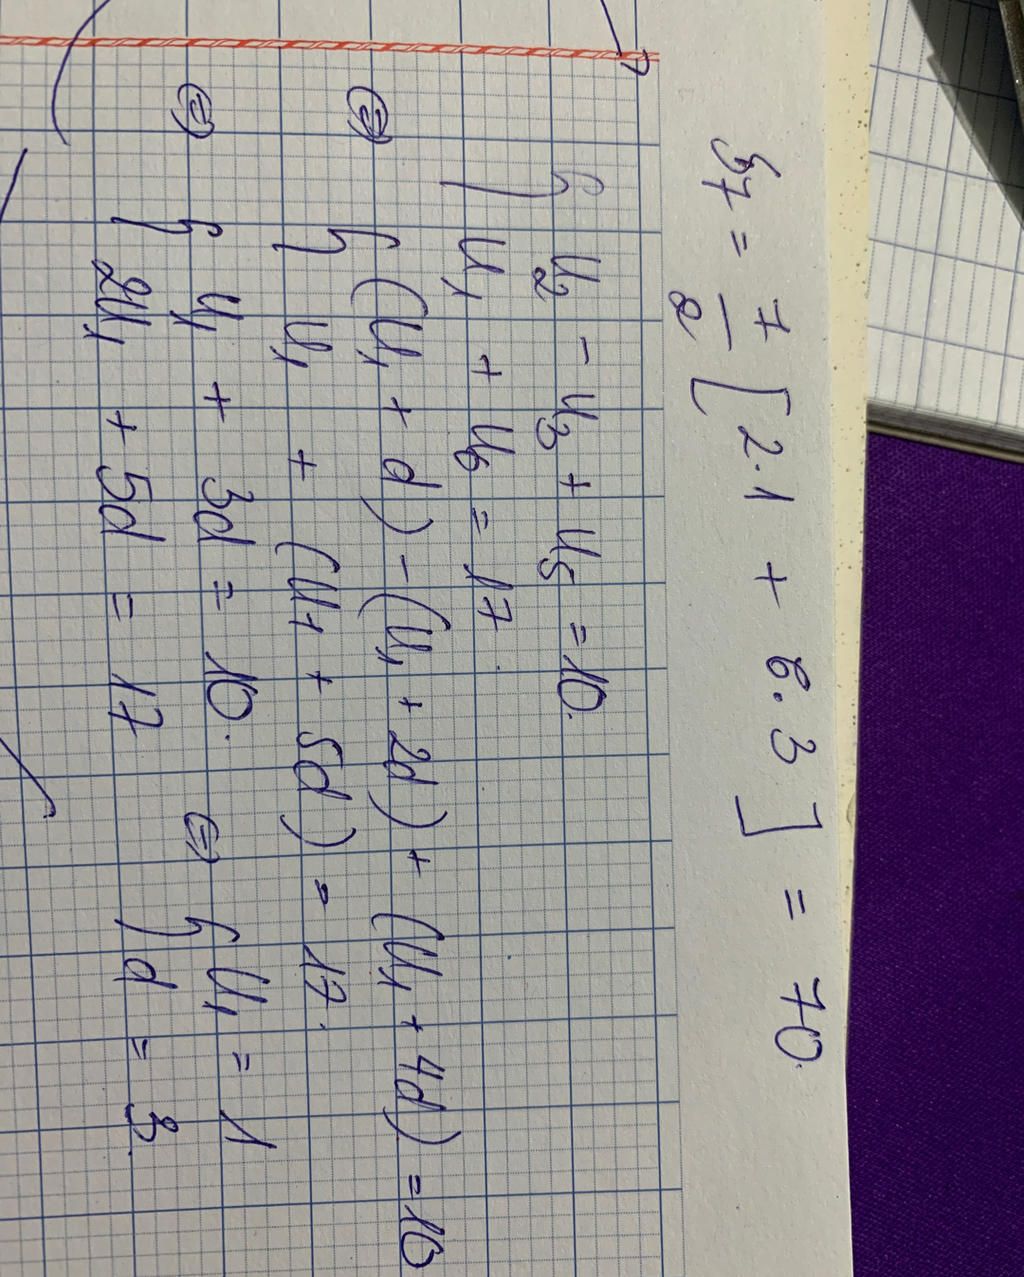 S₇ = 7/2 [2.1 + 6.3] = 70.
{ U₂ - U₃ + U₅ = 10.
U₁ + U₆ = 17.
⇔ { (U₁ + d) - (U₁ + 2d) + (U₁ + 4d) = 10
U₁ + (U₁ + 5d) = 17.
⇔ { U₁ + 3d = 10. ⇔ { U₁ = 1
2U₁ + 5d = 17 d = 3.